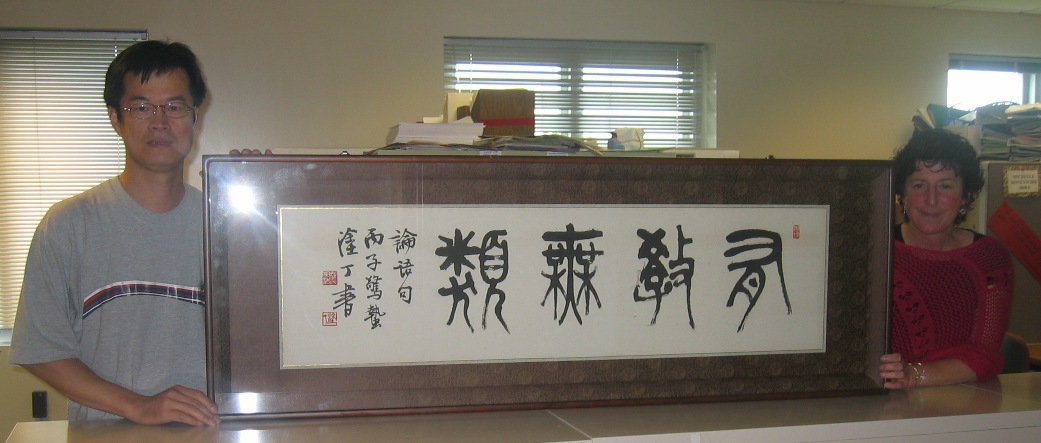 有教無類
論語句
丙子驚蟄
塗丁書